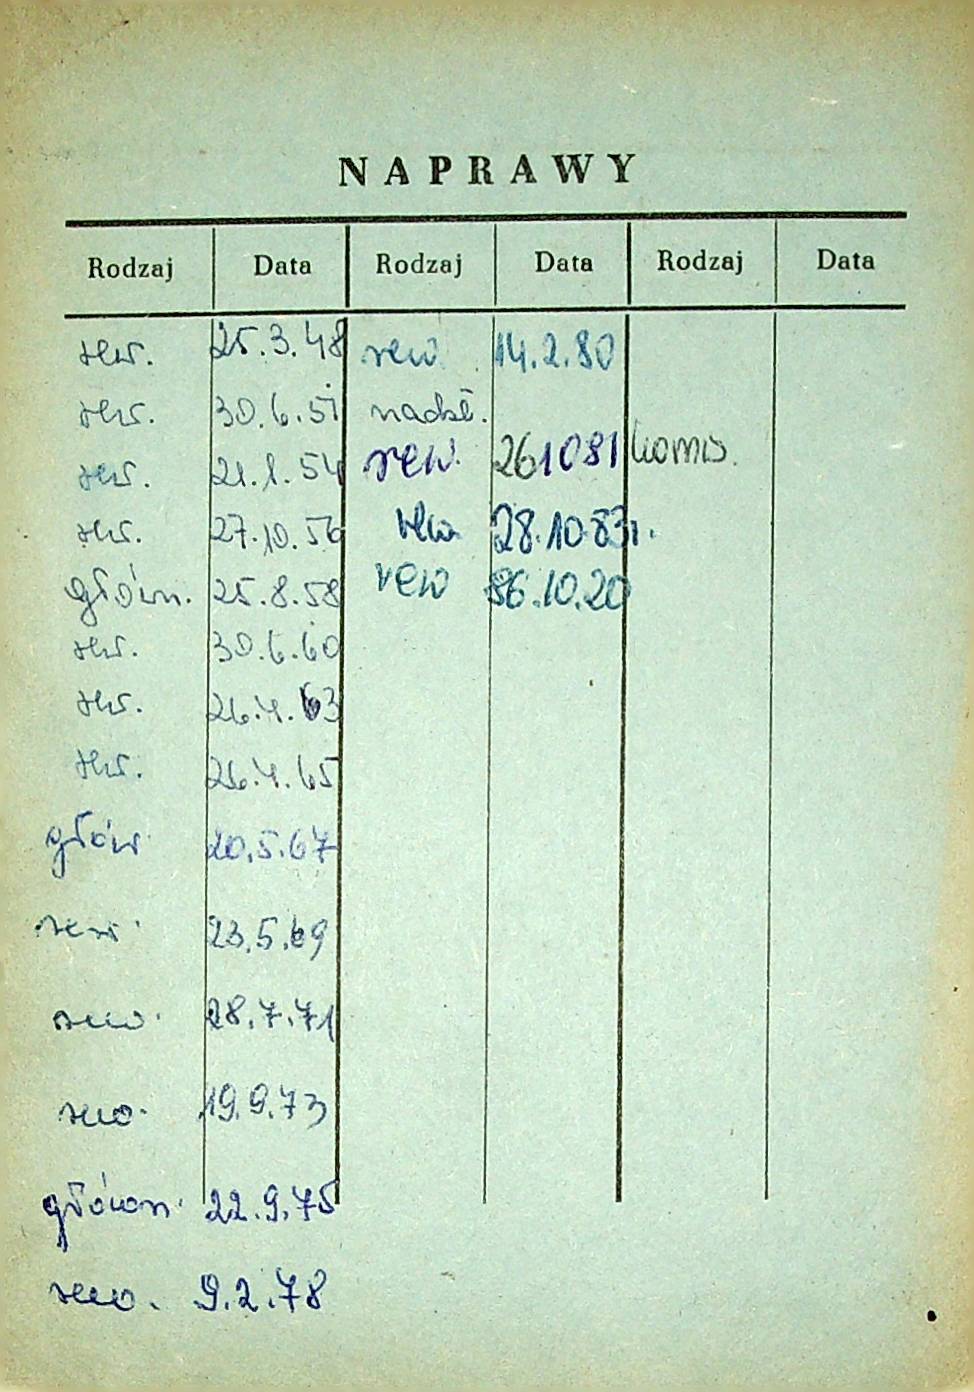 NAPRAWY
Rodzaj Data Rodzaj Data Rodzaj Data
rew. 25.3.48 rew. 14.2.80
rew. 30.6.51 nadzw.
rew. 21.1.54 rew. 261081 komis.
rew. 27.10.56 rew. 28.10.83r.
główn. 25.8.58 rew 86.10.20
rew. 30.6.60
rew. 26.4.63
rew. 26.4.65
główn 20.5.67
rew. 23.5.69
rew. 28.7.71
rew. 19.9.73
główn. 22.9.75
rew. 9.2.78